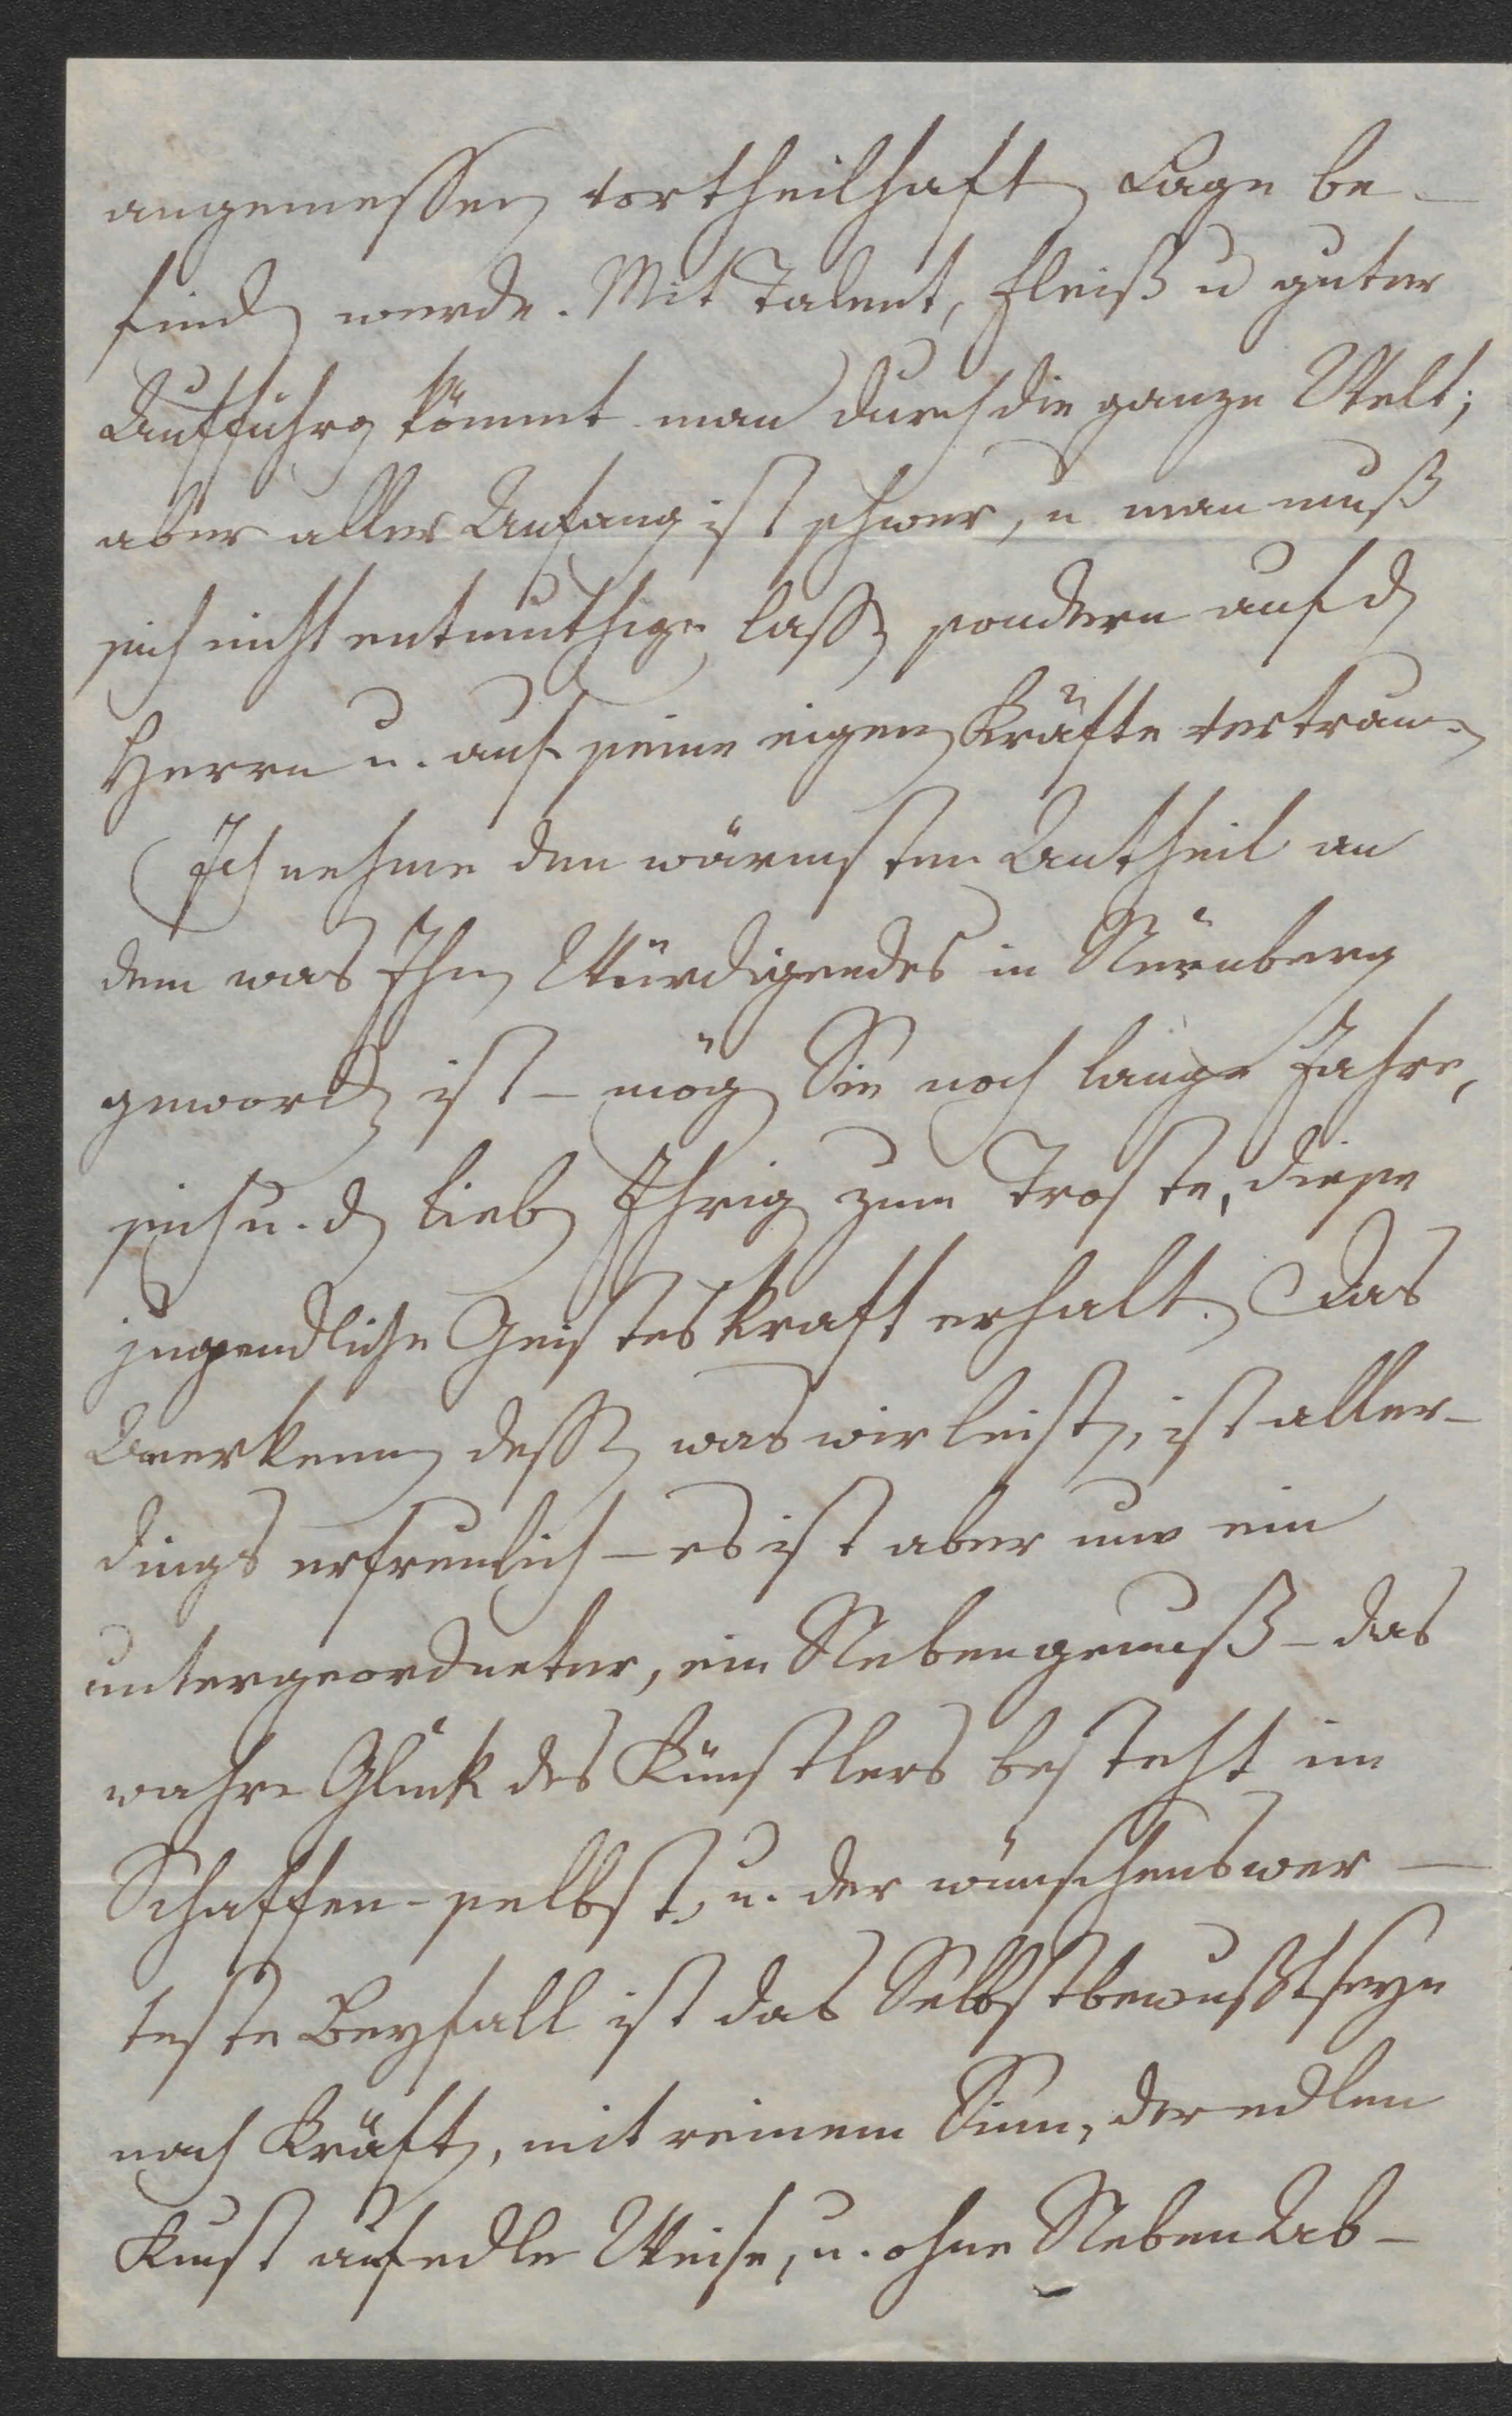 angemessen vortheilhaft Lage be-
find werde. Mit Talent, Fleiß u guter
Aufführg kömmt man durch die ganze Welt;
aber aller Anfang ist schwer, u man muß
sich nicht entmuthigen lassen sondern auf d
Herrn u. auf seine eigen Kräfte vertrauen
Ich nehme den wärmsten Antheil an
dem was Ihn Würdigendes in Nürnberg
geword ist – mög Sie noch lange Jahre,
sich u. d lieb Ihrig zum Troste, diese
jugendliche Geisteskraft erhalt. Das
Anerkenn dessen was wir leist, ist aller-
dings erfreulich – es ist aber nur ein
untergeordneter, ein Nebengenuß – das
wahre Glück des Künstlers besteht im
Schaffen selbst, u. der wünschenswer-
teste Beyfall ist das Selbstbewußtseyn
nach Kräft, mit reinem Sinn, der edlen
Kunst auf edle Weise, u. ohne Neben Ab-